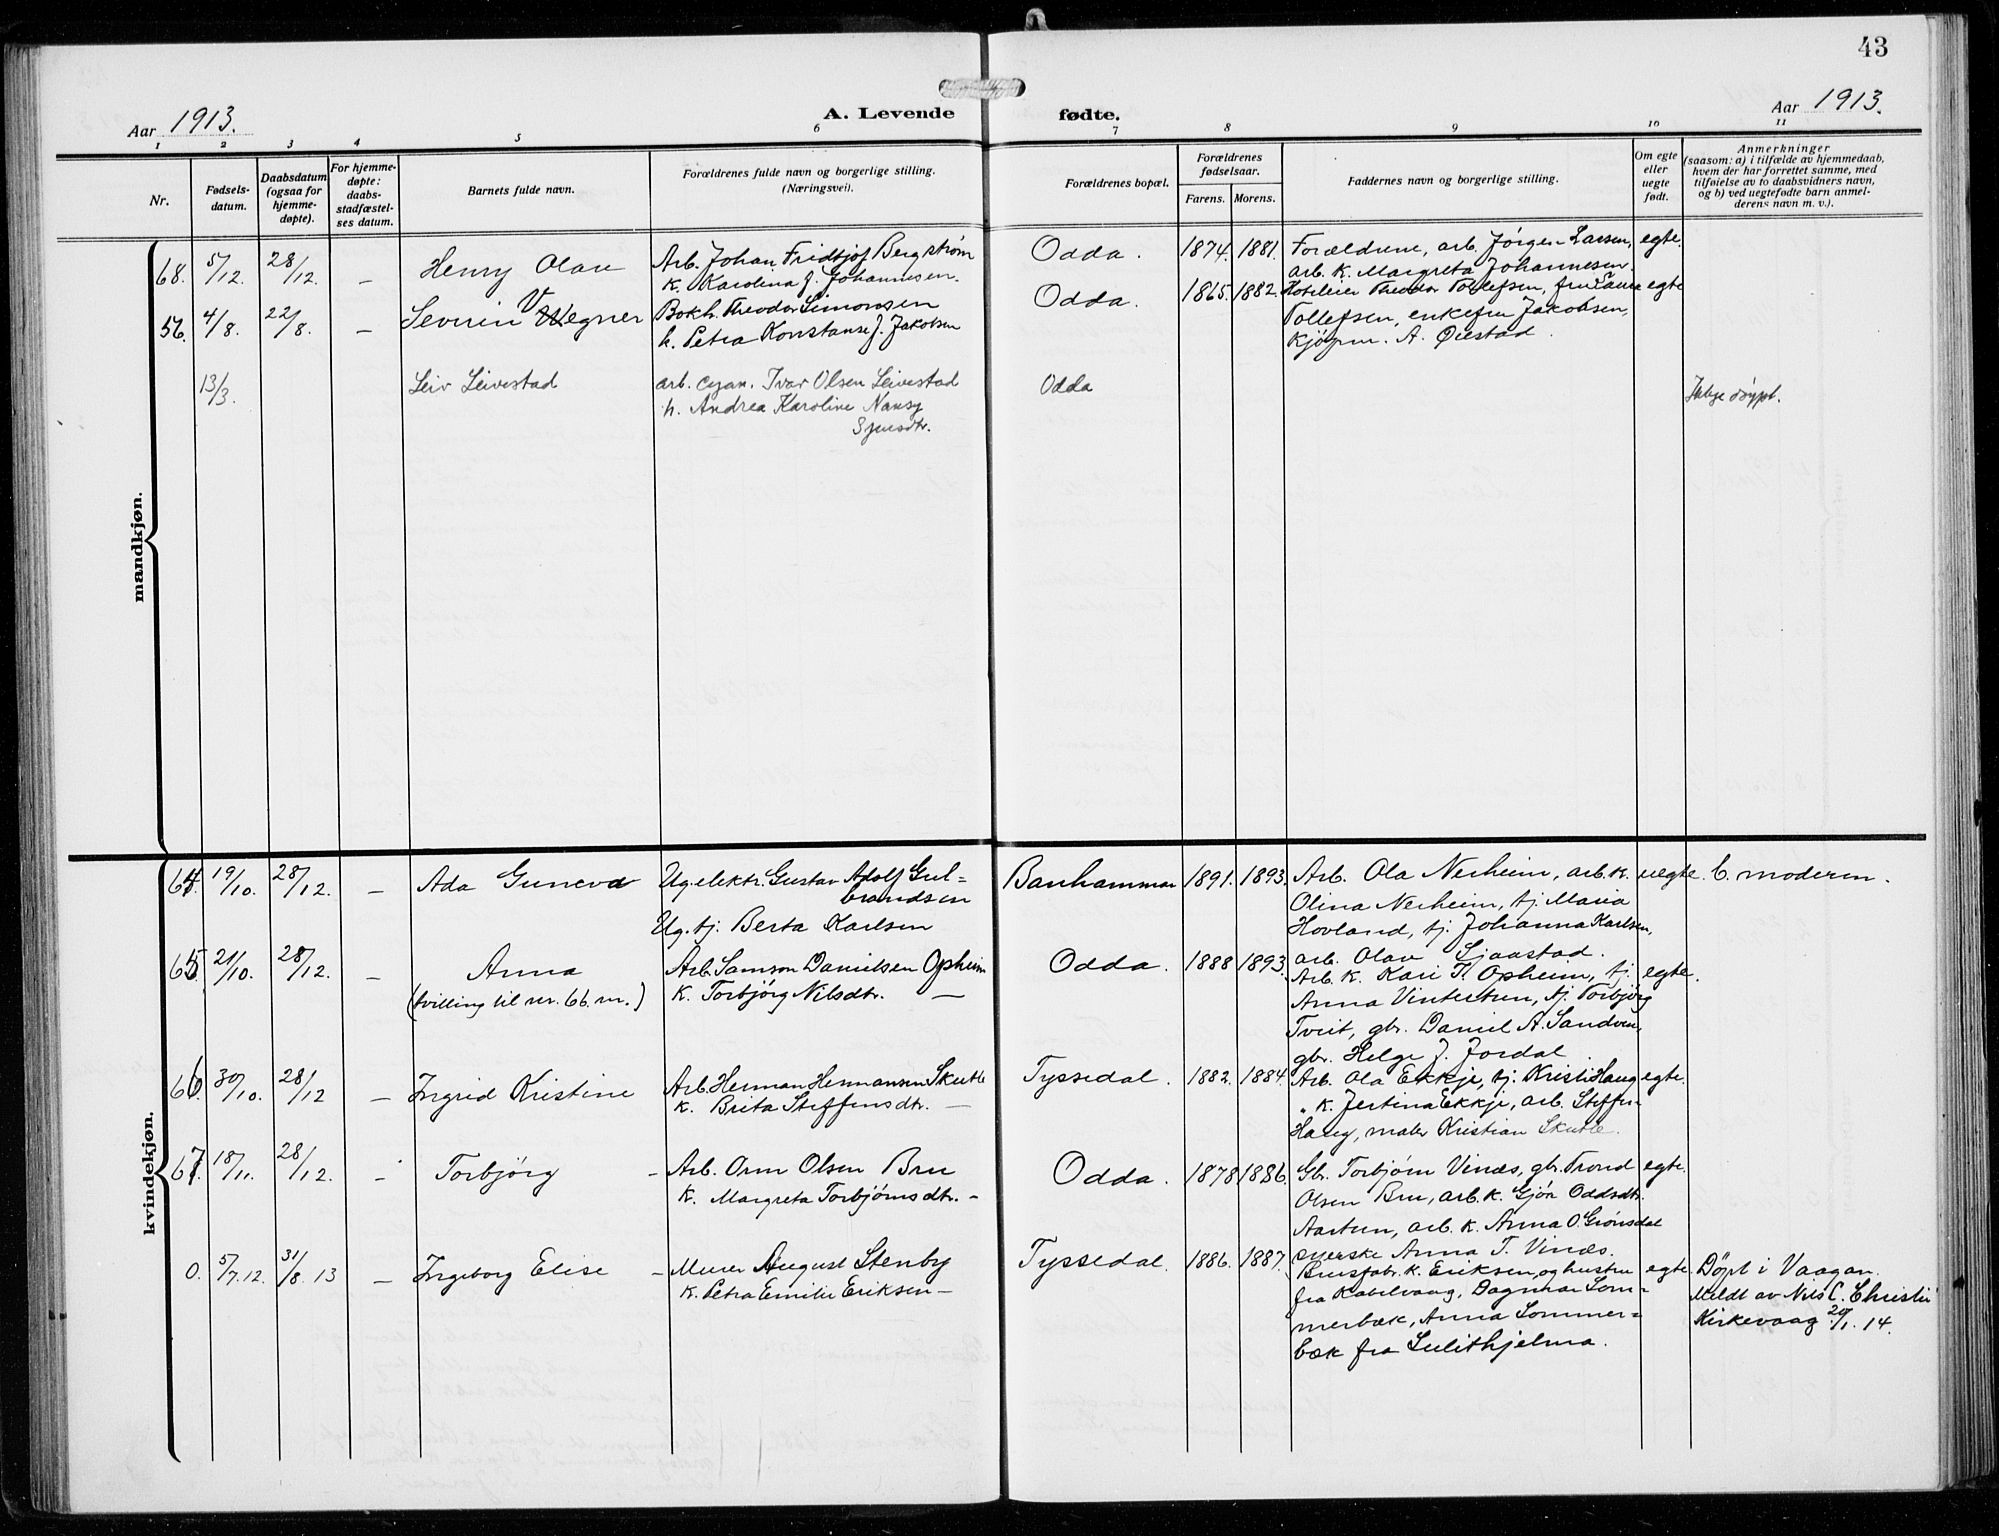 43
Aar 1913.
A. Levende fødte.
Aar 1913.
1 2 3 4 5 6 7 8 9 10 11
Nr.
Fødsels-
datum.
Daabsdatum
(ogsaa for
hjemme-
døpte).
For hjemme-
døpte:
daabs-
stadfæstel-
ses datum.
Barnets fulde navn.
Forældrenes fulde navn og borgerlige stilling.
(Næringsvei).
Forældrenes bopæl.
Forældrenes
fødselsaar.
Farens. Morens.
Faddernes navn og borgerlige stilling.
Om egte
eller
uegte
født.
Anmerkninger
(saasom: a) i tilfælde av hjemmedaab,
hvem der har forrettet samme, med
tilføielse av to daabsvidners navn,
og b) ved uegtefødte barn anmel-
derens navn m. v.).
mandkjøn.
68. 5/12. 28/12. — Henry Olav
Arb. Johan Fridtjof Bergstrøm
K. Karolina J. Johannesen.
Odda. 1874. 1881.
Forældrene, arb. Jørgen Larsen,
arb. K. Margreta Johannesen.
egte.
56. 4/8. 22/8. — Severin Wegner
Bokh. Theodor Simonsen
h. Petra Konstanse J. Jakobsen
Odda. 1865. 1882.
Hoteleier Theodor Tollefsen, fru Laura
Tollefsen, enkefru Jakobsen,
Kjøpm. A. Øiestad.
egte
13/3. Leiv Leivestad
arb. cyan. Ivar Olsen Leivestad
h. Andrea Karoline Nansy
Odda
Ikkje døypt.
kvindekjøn.
64. 19/10. 28/12. — Ada Guneva
Ug. elektr. Gustav Adolf Gul=
brandsen
Ug. tj. Berta Karlsen
Banhammar 1891. 1893.
Arb. Ola Nerheim, arb. k.
Olina Nerheim, tj. Maria
Hovland, tj. Johanna Karlsen,
arb. Olav Sjaastad.
uegte. b. moderen.
65. 21/10. 28/12. — Anna
(tvilling til nr. 66. m.)
Arb. Samson Danielsen Opheim
K. Torbjørg Nilsdtr. —
Odda. 1888 1893.
Arb. K. Kari T. Opheim, tj.
Anna Vintertun, tj. Torbjørg
Tveit, gbr. Daniel A. Sandven,
gbr. Helge J. Jordal
egte.
66. 30/10. 28/12 — Ingrid Kristine
Arb. Herman Hermansen Skutle
K. Brita Steffensdtr. —
Tyssedal. 1882. 1884.
Arb. Ola Ekkje, tj. Kristi Haug
" K. Jertina Ekkje, arb. Steffen
Haug, maler Kristian Skutle.
egte.
67. 18/11. 28/12. — Torbjörg —
Arb. Orm Olsen Bru
K. Margreta Torbjørnsdtr. —
Odda. 1878 1886.
Gbr. Torbjørn Vinæs, gbr. Trond
Olsen Bru, arb. k. Gjøa Oddsdtr.
Aartun, arb. k. Anna O. Grønsdal
syerske Anna T. Vinæs.
egte.
0. 5/7. 12. 31/8. 13 — Ingeborg Elise —
Murer August Stenby
K. Petra Emilie Eriksen —
Tyssedal. 1886. 1887.
Brusfabr. K. Eriksen, og hustru
fra Kabelvaag, Dagmar Som=
merbæk, Anna Sommer=
bæk fra Sulithjelma.
egte.
Døpt i Vaagan.
Meldt av Nils C. Christie
Kirkevaag 20/1. 14.